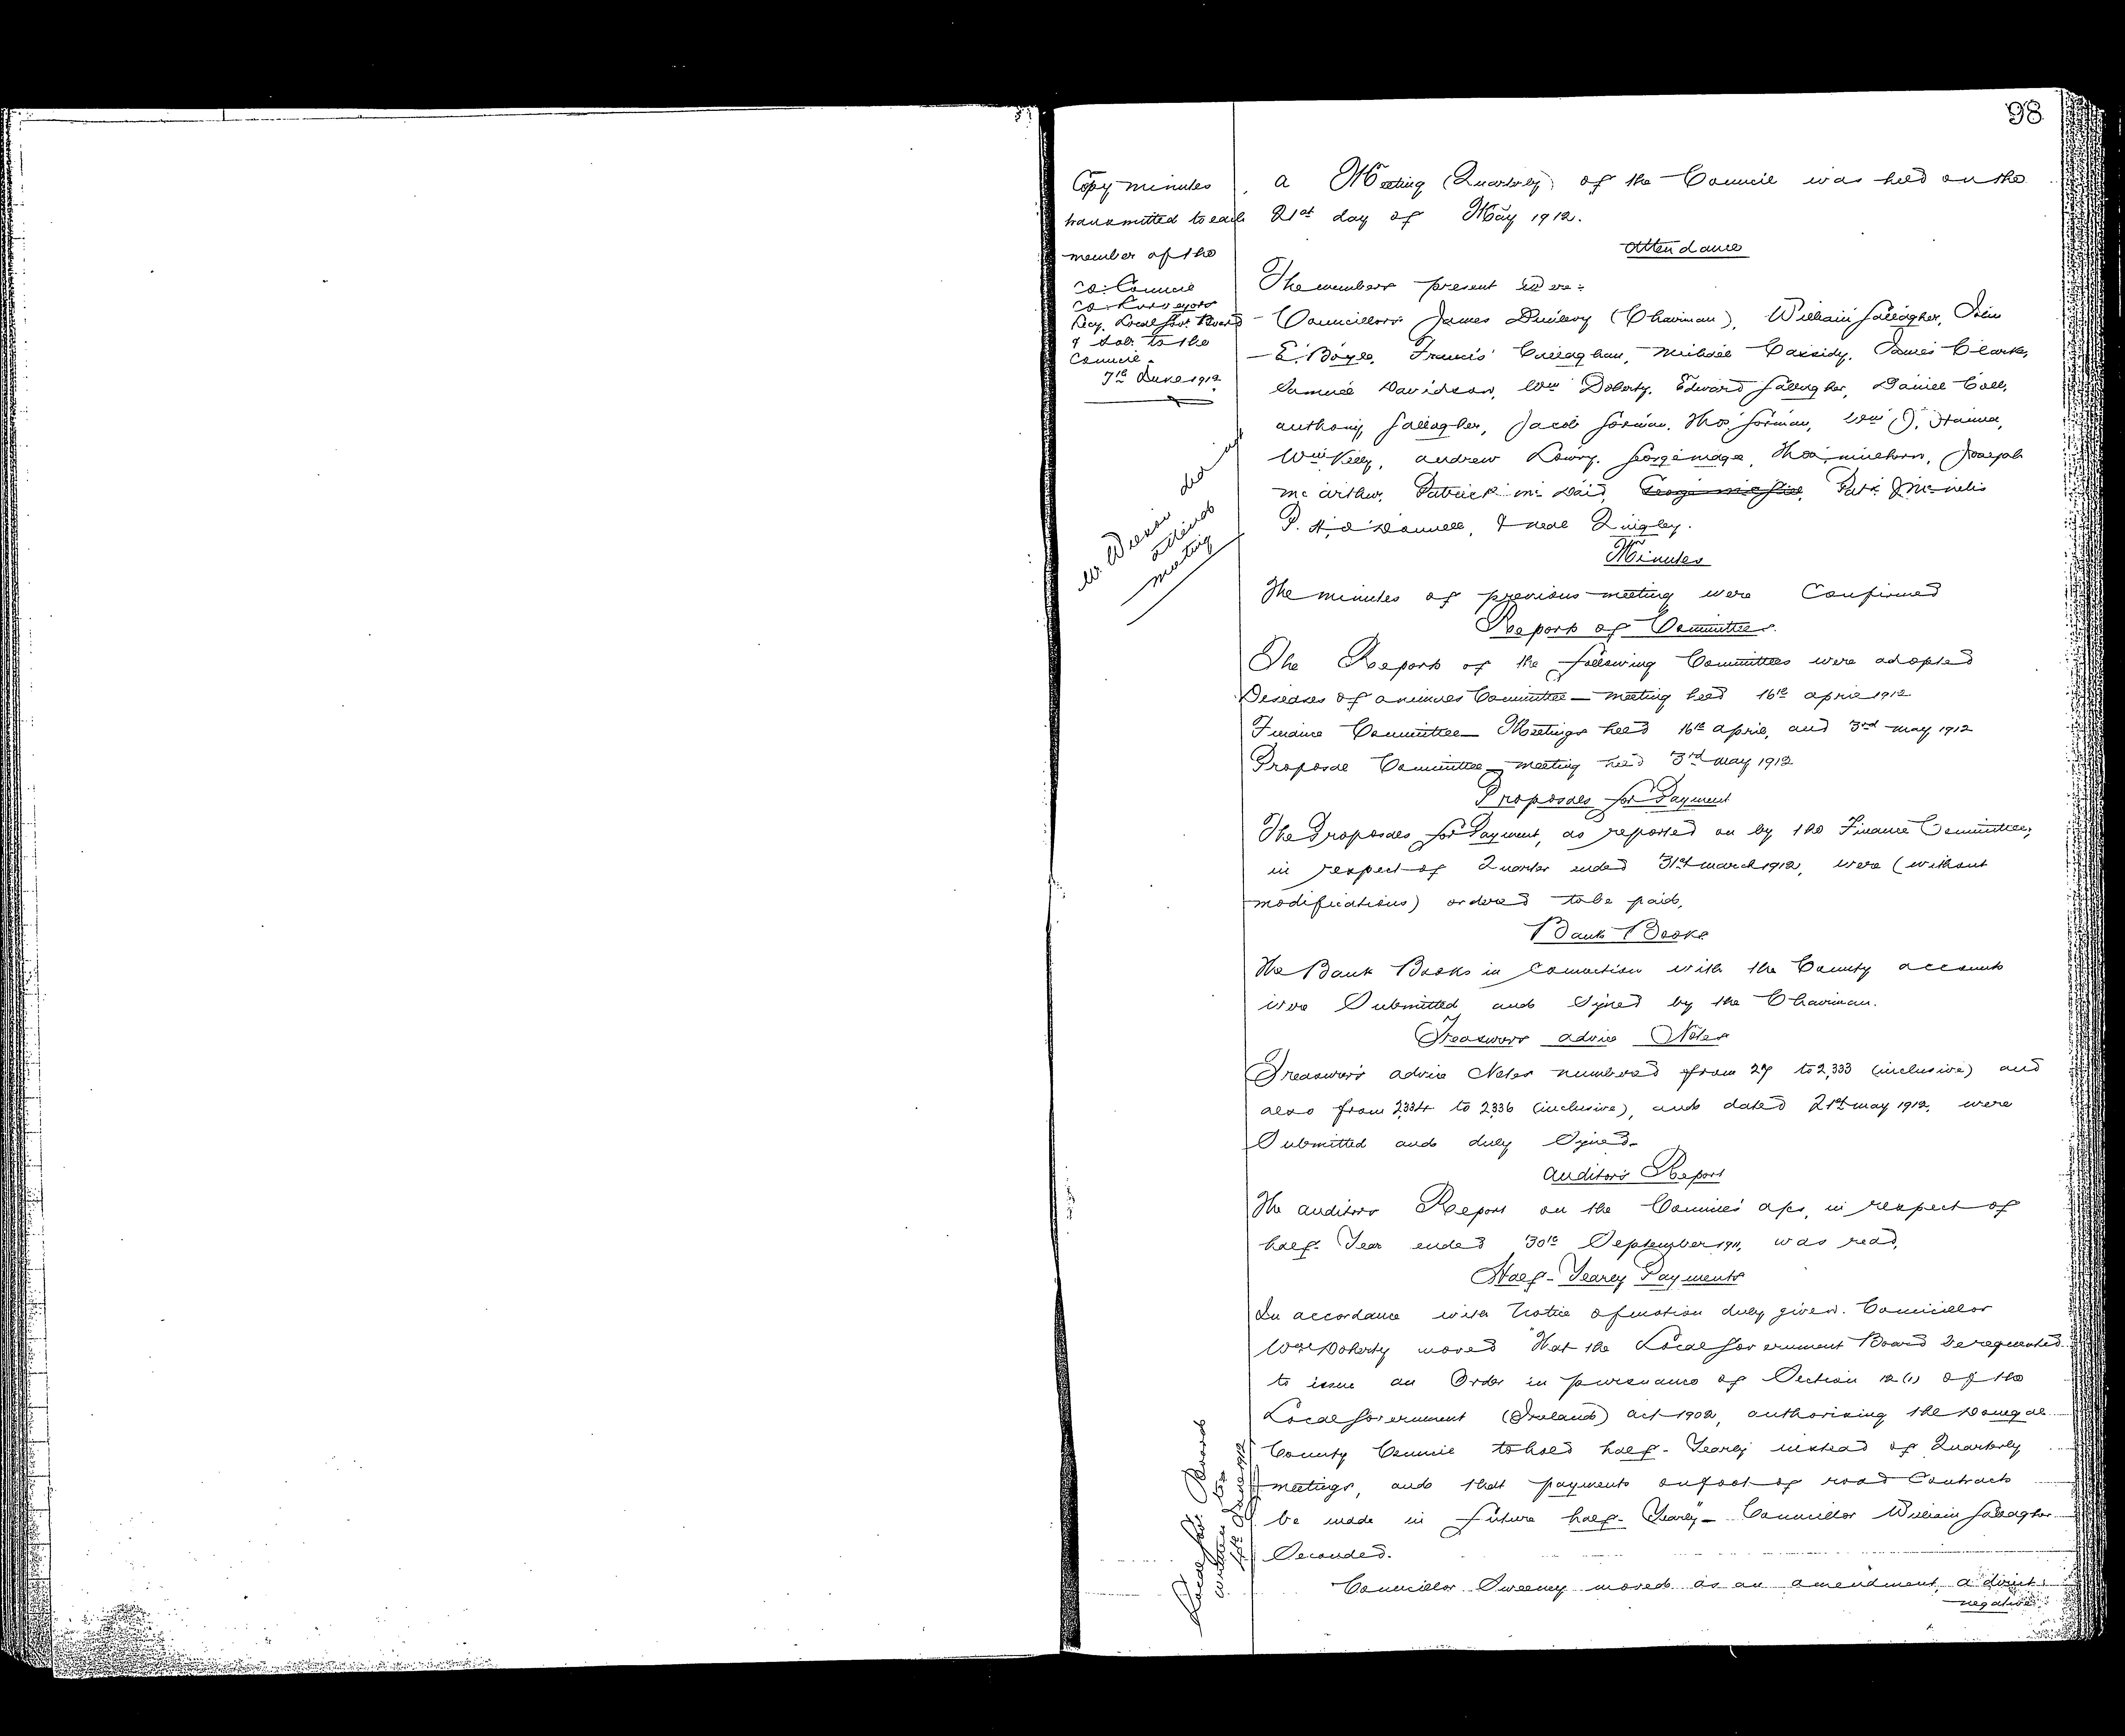 98
Copy minutes
transmitted to each
member of the
Co. Council
Co. Surveyors
Secy. Local Gov. Board
& Sol. to the
Council.
7th June 1912
A Meeting (Quarterly) of the Council was held on the
21st day of May 1912.
Attendance
The members present were:
Councillors James Dunlevy (Chairman), William Gallagher, John
E. Boyle, Francis Callaghan, Michael Cassidy, James Clarke,
Samuel Davidson, Wm Doherty, Edward Gallagher, Daniel Coll,
Anthony Gallagher, Jacob Gorman, Thos Gorman, Wm J. Hanna,
Wm Kelly, Andrew Lowry, George Mage, Thos, Joseph
McArthur, Patrick McDaid, Patk J McNelis
P. H. O'Donnell, & Neal Quigley.
did not
attend
meeting
Minutes
The minutes of previous meeting were Confirmed
Reports of Committees.
The Reports of the following Committees were adopted
Diseases of Animals Committee — Meeting held 16th April 1912
Finance Committee — Meetings held 16th April, and 3rd May 1912
Proposal Committee — Meeting held 3rd May 1912
Proposals for Payment
The Proposals for Payment, as reported on by the Finance Committee,
in respect of Quarter ended 31st March 1912, were (without
modifications) ordered to be paid.
Bank Books
The Bank Books in Connection with the County accounts
were Submitted and Signed by the Chairman.
Treasurers Advice Notes
Treasurer's Advice Notes numbered from 27 to 2,333 (inclusive) and
also from 2334 to 2336 (inclusive), and dated 21st May 1912, were
Submitted and duly Signed.
Auditor's Report
The Auditors Report on the Council's a/cs, in respect of
half-Year ended 30th September 1911, was read.
Half-Yearly Payments
In accordance with Notice of motion duly given. Councillor
Wm Doherty moved "That the Local Government Board be requested
to issue an Order in pursuance of Section 12(1) of the
Local Government (Ireland) Act 1902, authorising the Donegal
County Council to hold half-Yearly instead of Quarterly
meetings, and that payments on foot of road Contracts
be made in future half-Yearly — Councillor William Gallagher
Seconded.
Local Gov. Board
written to
4th June 1912
Councillor Sweeney moved as an amendment, a direct
negative.